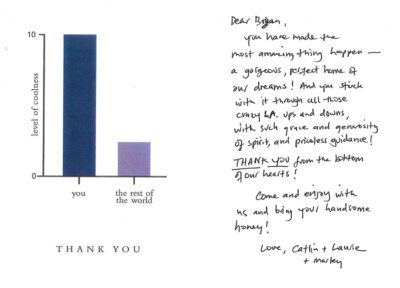 10
level of coolness
0
you
the rest of
the world
THANK YOU
Dear Bryan,
you have made the
most amazing thing happen —
a gorgeous, perfect home of
our dreams! And you stuck
with it through all those
crazy L.A. ups and downs,
with such grace and generosity
of spirit, and priceless guidance!
THANK YOU from the bottom
of our hearts!
Come and enjoy with
us and bring your handsome
honey!
Love, Caitlin + Laurie
+ Marley